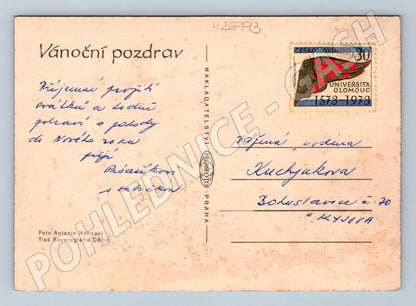 422793
Vánoční pozdrav
Příjemné prožití
svátků a hodně
zdraví a pohody
do Nového roku
přejí
s rodičkou
Foto Antonín Neheský
Tisk Severografia Děčín
NAKLADATELSTVÍ
PRAHA
ČESKOSLOVENSKO
30
UNIVERSITA
OLOMOUC
1573-1973
Vážená rodina
Kuchyňkova
Bohuslavice č. 70
u KYJOVA
POHLEDNICE - CASH